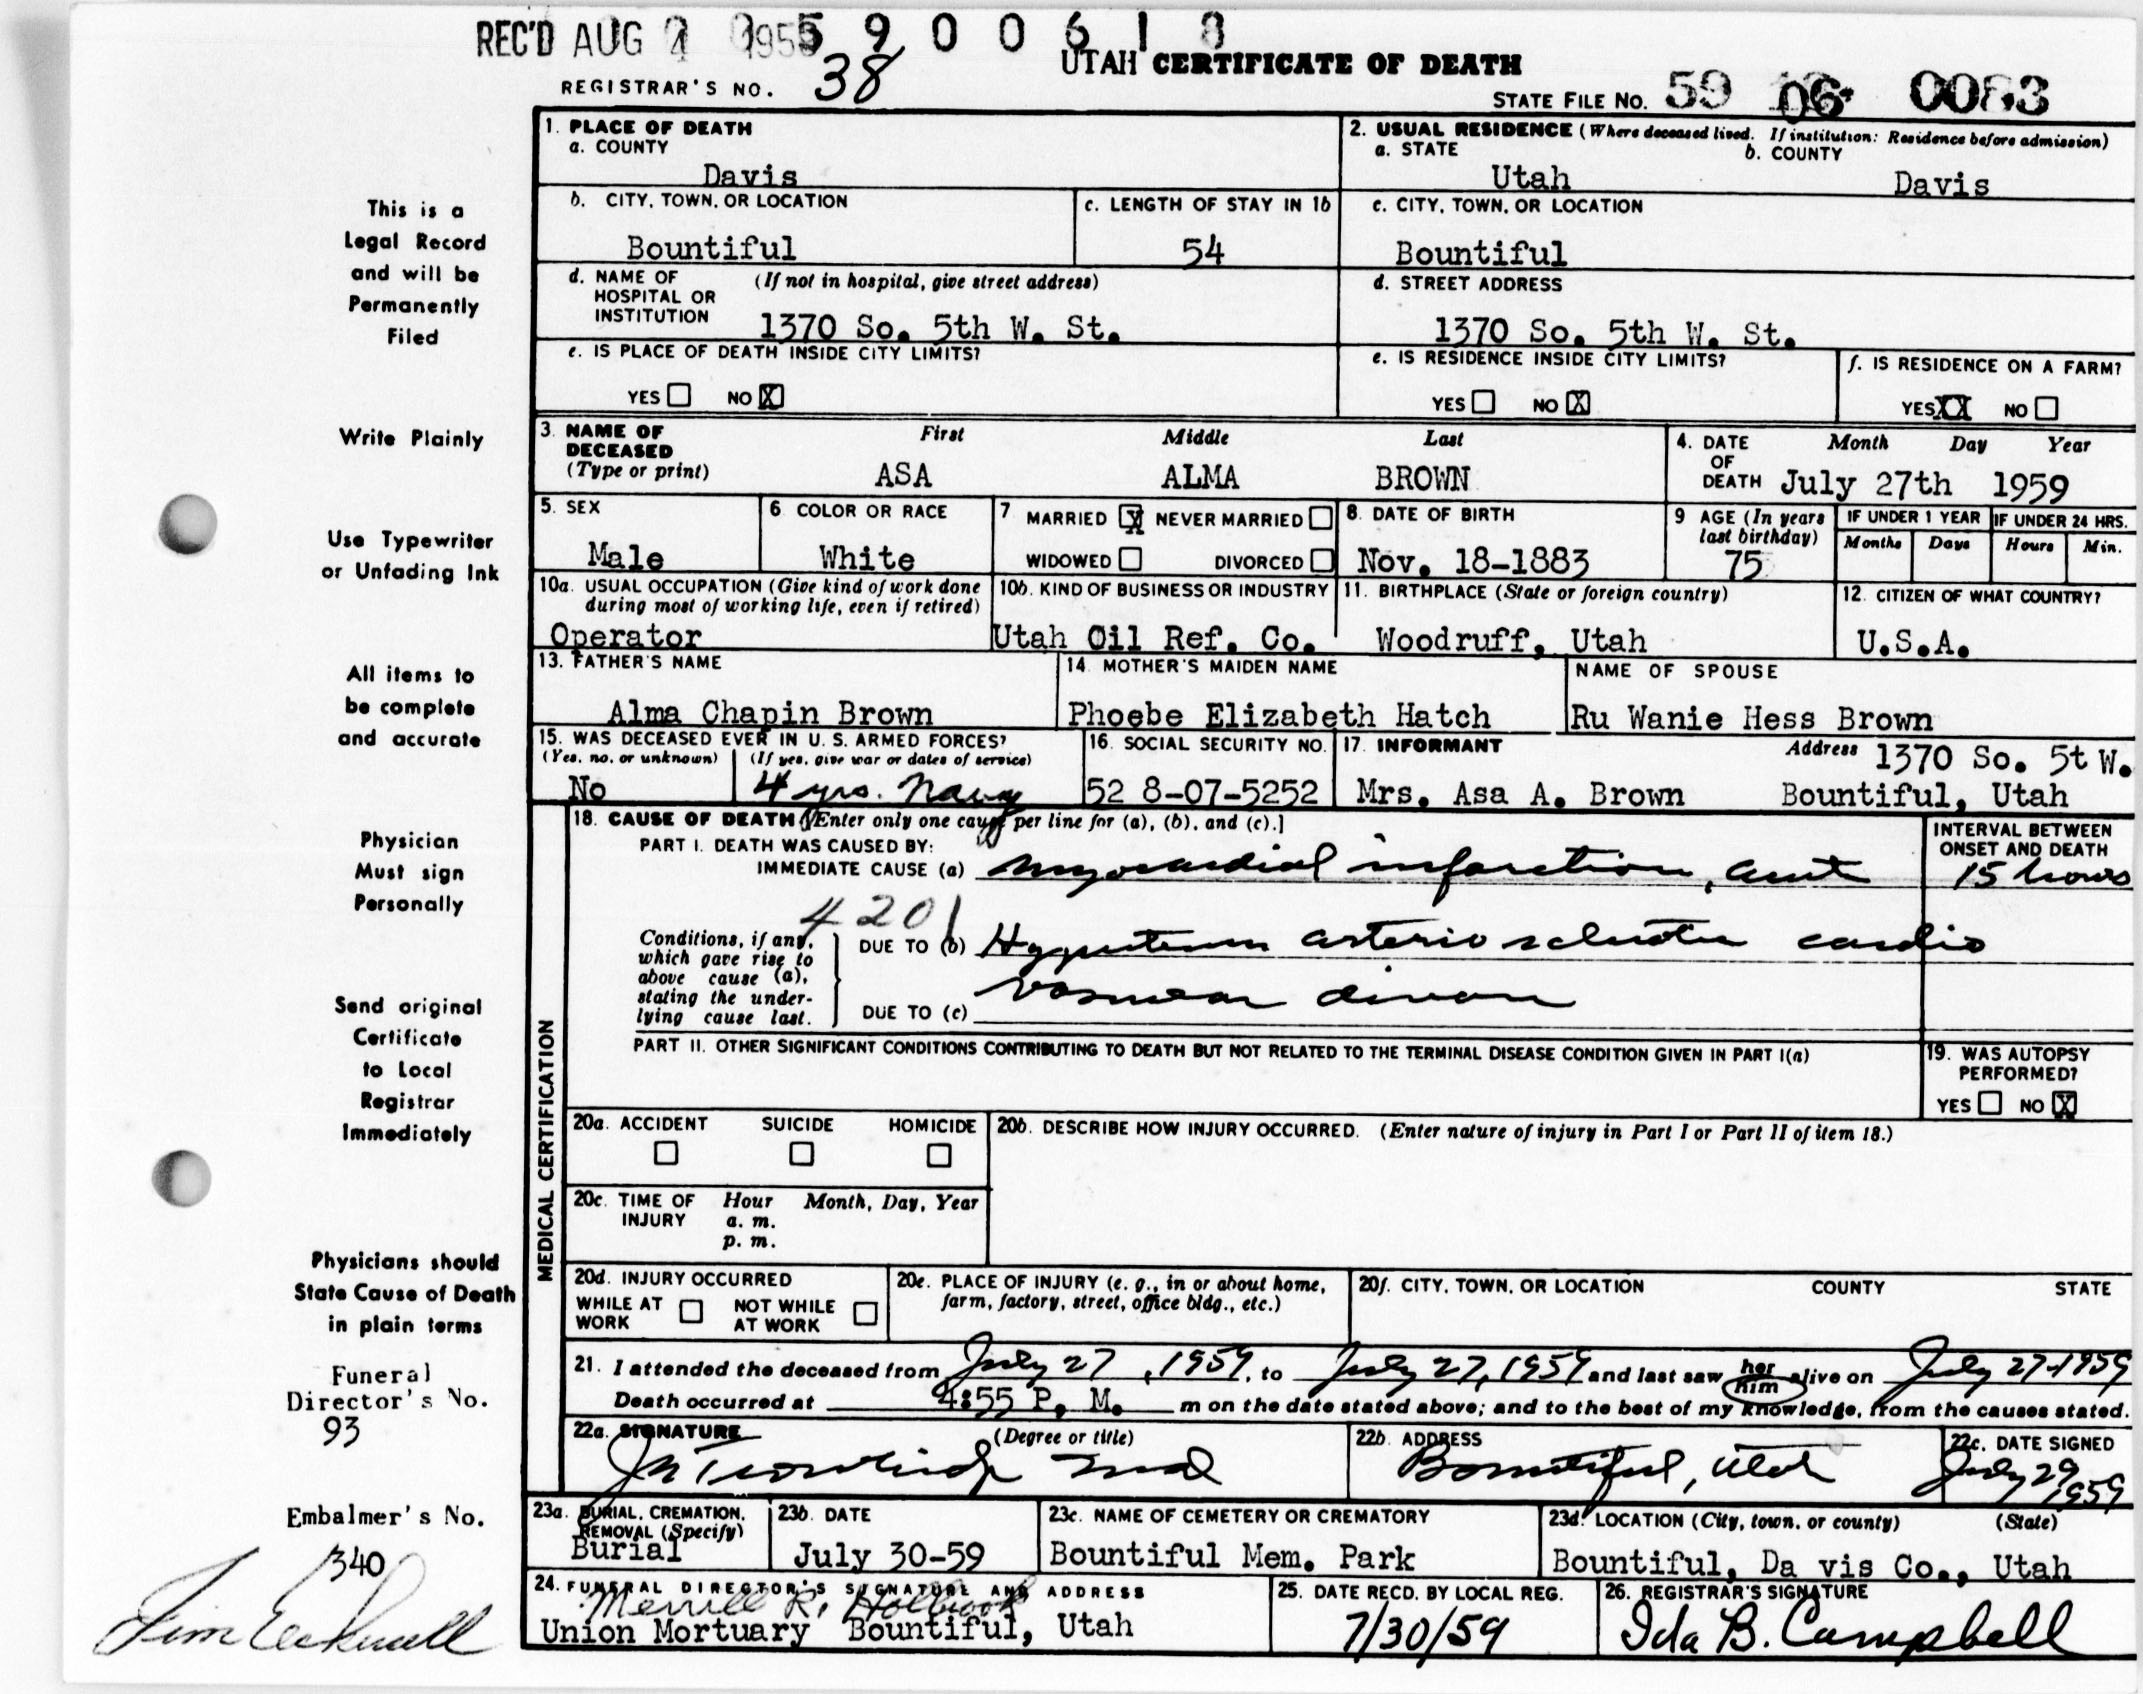 REC'D AUG 1959 5900618
UTAH CERTIFICATE OF DEATH
REGISTRAR'S NO. 38
STATE FILE NO. 59 06 0083
This is a
Legal Record
and will be
Permanently
Filed
Write Plainly
Use Typewriter
or Unfading Ink
All items to
be complete
and accurate
Physician
Must sign
Personally
Send original
Certificate
to Local
Registrar
Immediately
Physicians should
State Cause of Death
in plain terms
Funeral
Director's No.
93
Embalmer's No.
340
1. PLACE OF DEATH
a. COUNTY
Davis
2. USUAL RESIDENCE (Where deceased lived. If institution: Residence before admission)
a. STATE b. COUNTY
Utah Davis
b. CITY, TOWN, OR LOCATION
Bountiful
c. LENGTH OF STAY IN 1b
54
c. CITY, TOWN, OR LOCATION
Bountiful
d. NAME OF (If not in hospital, give street address)
HOSPITAL OR
INSTITUTION
1370 So. 5th W. St.
d. STREET ADDRESS
1370 So. 5th W. St.
e. IS PLACE OF DEATH INSIDE CITY LIMITS?
YES NO X
e. IS RESIDENCE INSIDE CITY LIMITS?
YES NO X
f. IS RESIDENCE ON A FARM?
YES XX NO
3. NAME OF First Middle Last
DECEASED
(Type or print) ASA ALMA BROWN
4. DATE Month Day Year
OF
DEATH July 27th 1959
5. SEX
Male
6 COLOR OR RACE
White
7 MARRIED X NEVER MARRIED
WIDOWED DIVORCED
8. DATE OF BIRTH
Nov. 18-1883
9 AGE (In years
last birthday)
75
IF UNDER 1 YEAR
Months Days
IF UNDER 24 HRS.
Hours Min.
10a. USUAL OCCUPATION (Give kind of work done
during most of working life, even if retired)
Operator
10b. KIND OF BUSINESS OR INDUSTRY
Utah Oil Ref. Co.
11. BIRTHPLACE (State or foreign country)
Woodruff, Utah
12. CITIZEN OF WHAT COUNTRY?
U.S.A.
13. FATHER'S NAME
Alma Chapin Brown
14. MOTHER'S MAIDEN NAME
Phoebe Elizabeth Hatch
NAME OF SPOUSE
Ru Wanie Hess Brown
15. WAS DECEASED EVER IN U. S. ARMED FORCES?
(Yes, no, or unknown) (If yes, give war or dates of service)
No 4 yrs. Navy
16. SOCIAL SECURITY NO.
52 8-07-5252
17. INFORMANT Address 1370 So. 5t W.
Mrs. Asa A. Brown Bountiful, Utah
MEDICAL CERTIFICATION
18. CAUSE OF DEATH [Enter only one cause per line for (a), (b), and (c).]
PART I. DEATH WAS CAUSED BY:
IMMEDIATE CAUSE (a) Myocardial infarction, acute
INTERVAL BETWEEN
ONSET AND DEATH
15 hours
4201
Conditions, if any,
which gave rise to
above cause (a),
stating the under-
lying cause last.
DUE TO (b) Hypertensive arteriosclerotic cardio
vascular disease
DUE TO (c)
PART II. OTHER SIGNIFICANT CONDITIONS CONTRIBUTING TO DEATH BUT NOT RELATED TO THE TERMINAL DISEASE CONDITION GIVEN IN PART I(a)
19. WAS AUTOPSY
PERFORMED?
YES NO X
20a. ACCIDENT SUICIDE HOMICIDE
20b. DESCRIBE HOW INJURY OCCURRED. (Enter nature of injury in Part I or Part II of item 18.)
20c. TIME OF Hour Month, Day, Year
INJURY a. m.
p. m.
20d. INJURY OCCURRED
WHILE AT NOT WHILE
WORK AT WORK
20e. PLACE OF INJURY (e. g., in or about home,
farm, factory, street, office bldg., etc.)
20f. CITY, TOWN, OR LOCATION COUNTY STATE
21. I attended the deceased from July 27, 1959, to July 27, 1959 and last saw her him alive on July 27-1959
Death occurred at 4:55 P. M. m on the date stated above; and to the best of my knowledge, from the causes stated.
22a. SIGNATURE (Degree or title)
22b. ADDRESS
Bountiful, Utah
22c. DATE SIGNED
July 29
1959
23a. BURIAL, CREMATION,
REMOVAL (Specify)
Burial
23b. DATE
July 30-59
23c. NAME OF CEMETERY OR CREMATORY
Bountiful Mem. Park
23d. LOCATION (City, town, or county) (State)
Bountiful, Da vis Co., Utah
24. FUNERAL DIRECTOR'S SIGNATURE AND ADDRESS
Merrill R. Holbrook
Union Mortuary Bountiful, Utah
25. DATE RECD. BY LOCAL REG.
7/30/59
26. REGISTRAR'S SIGNATURE
Ida B. Campbell